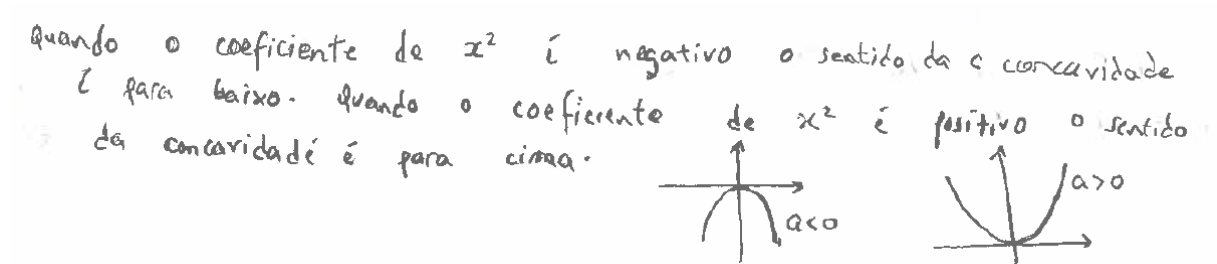 Quando o coeficiente de x² é negativo o sentido da c concavidade
é para baixo. Quando o coeficiente de x² é positivo o sentido
da concavidade é para cima.
a<0
a>0